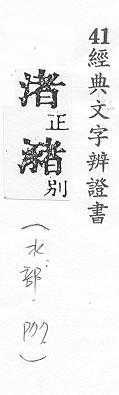 41經典文字辨證書
渚正
別
（水部·